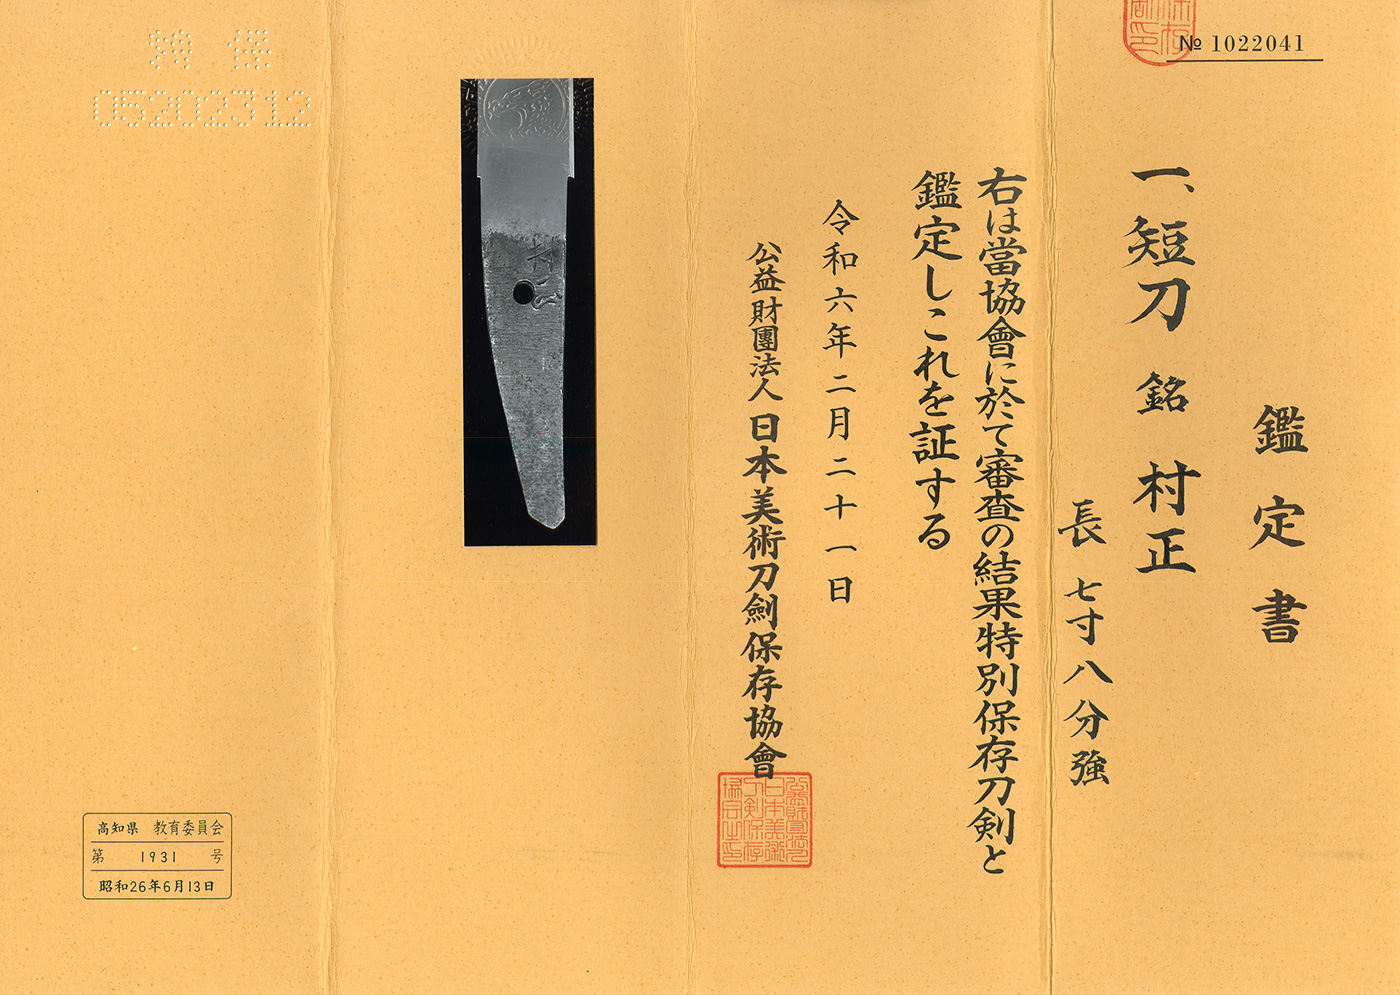 № 1022041
鑑定書
一、短刀 銘 村正
長 七寸八分強
右は當協會に於て審査の結果特別保存刀剣と
鑑定しこれを証する
令和六年二月二十一日
公益財團法人 日本美術刀劍保存協會
村正
特保
05202312
高知県 教育委員会
第 1931 号
昭和26年6月13日